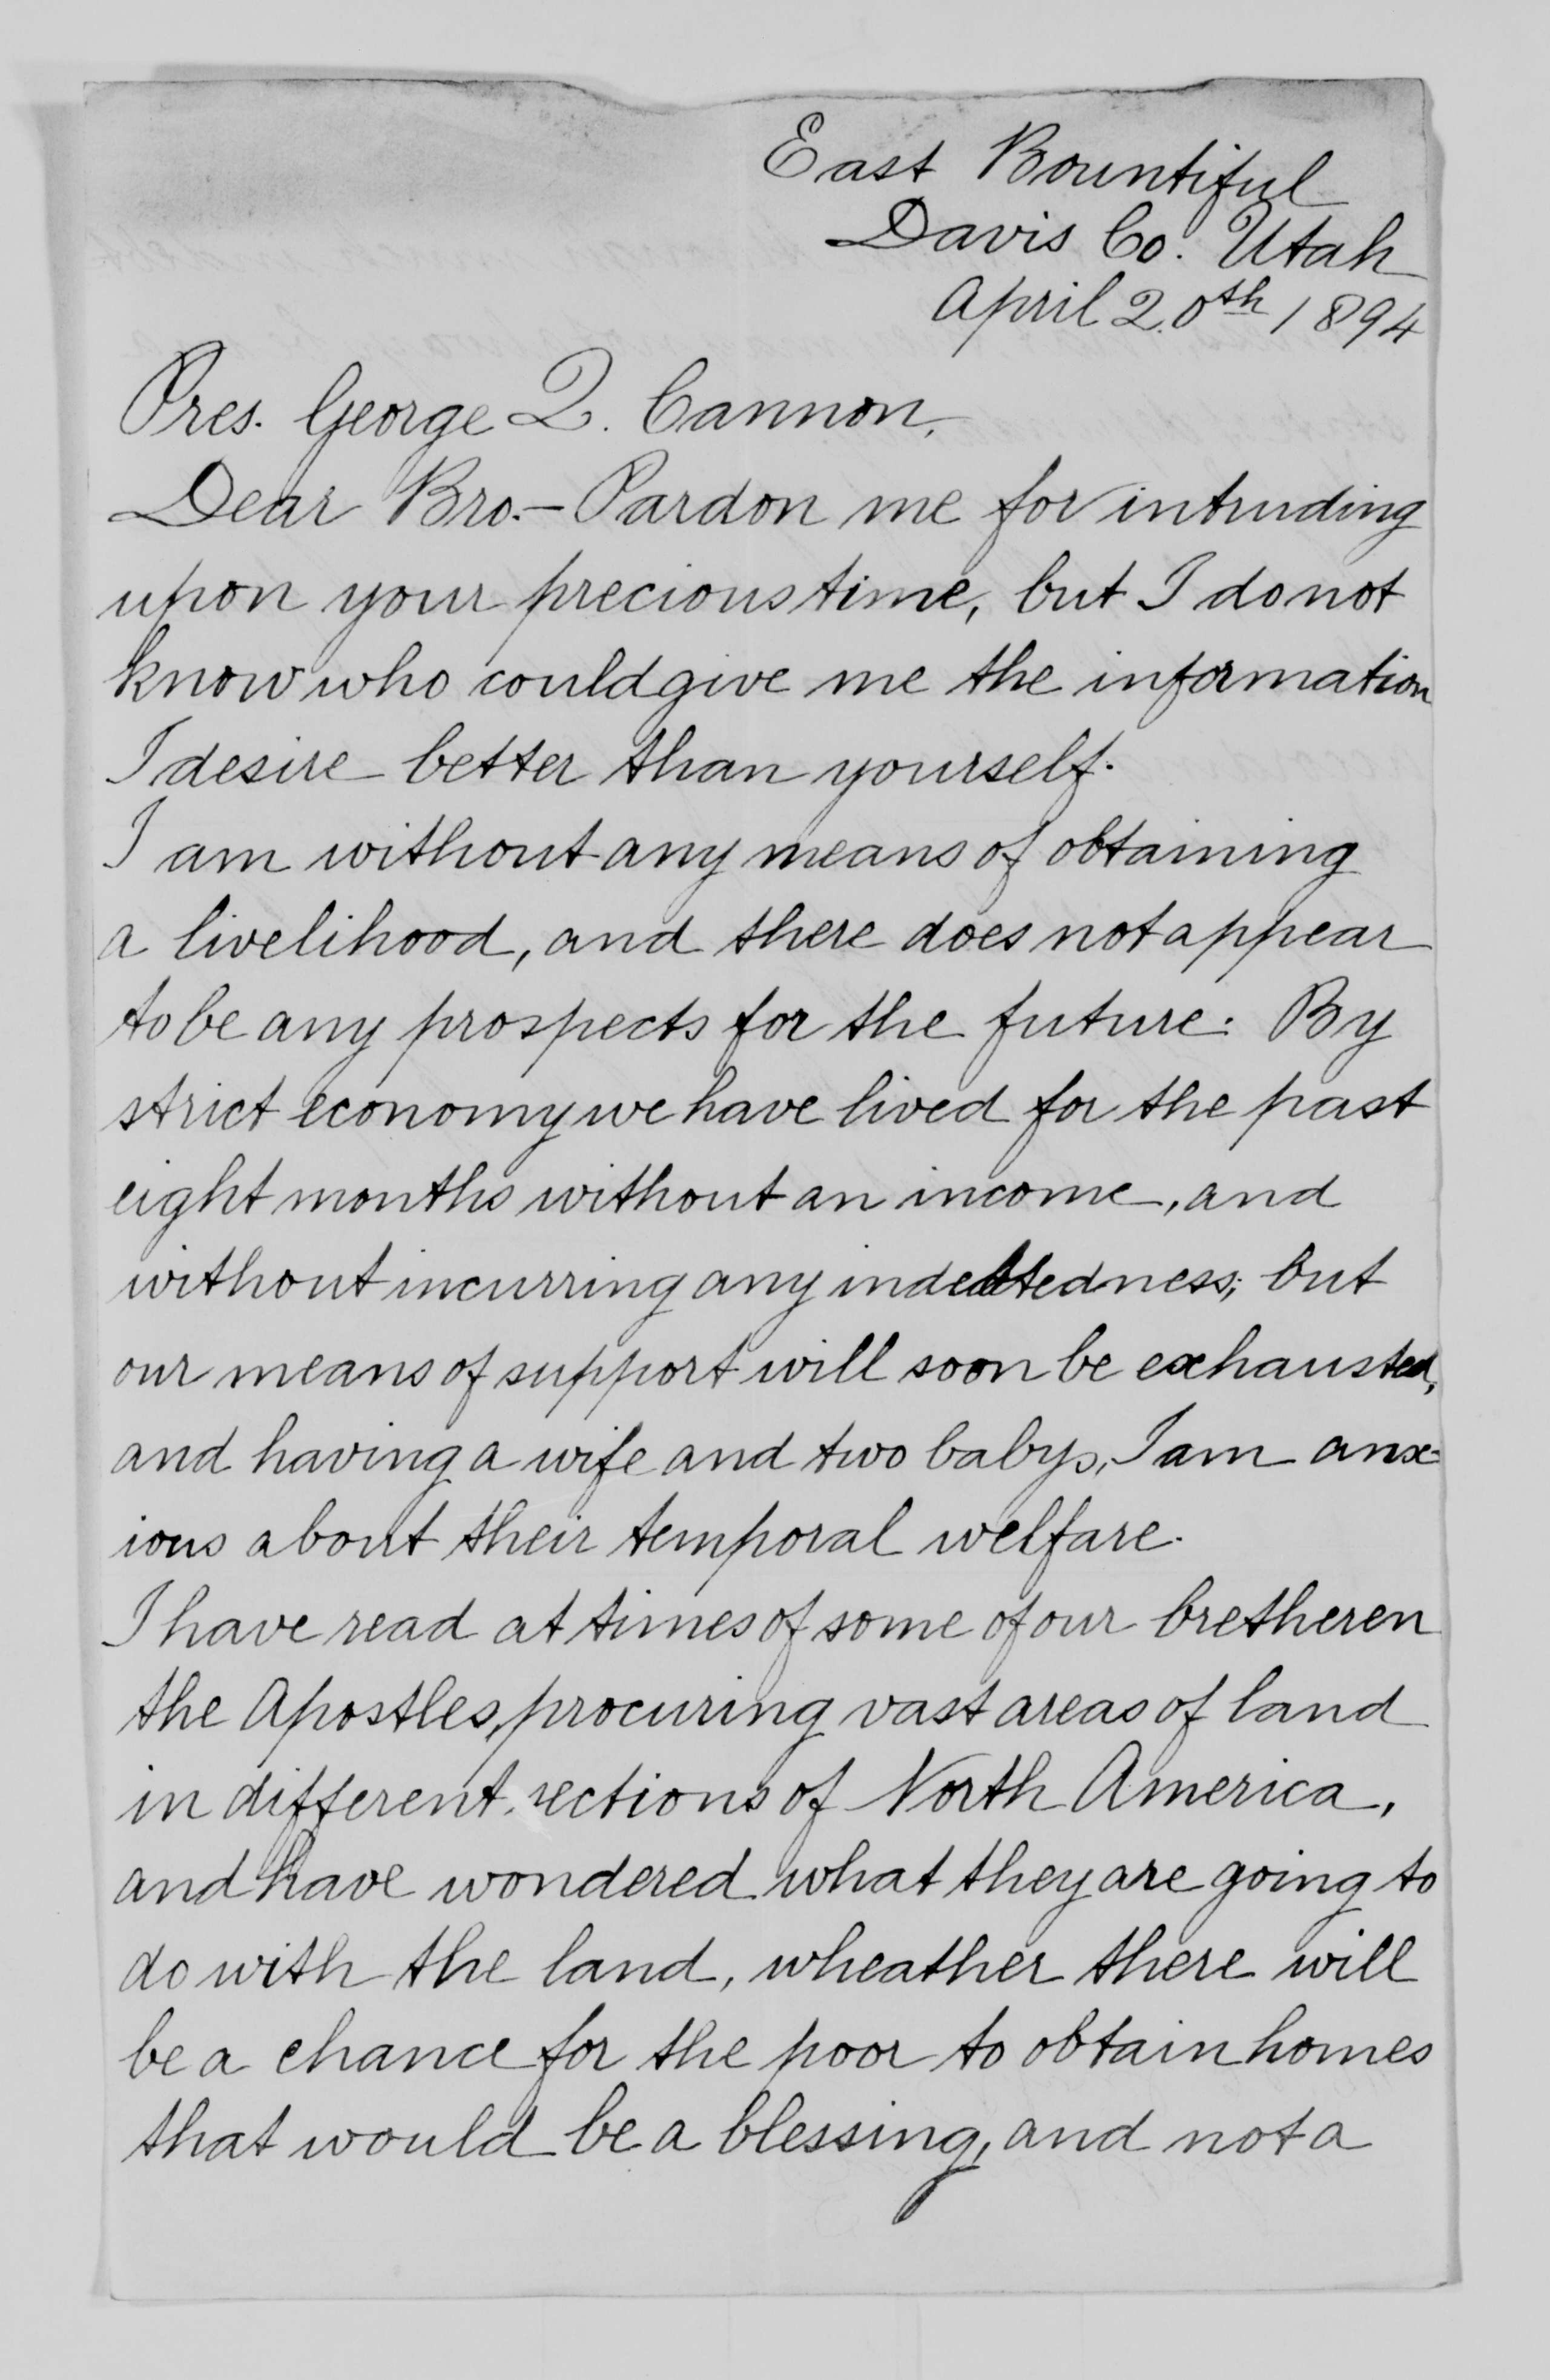 East Bountiful
Davis Co. Utah
April 20th 1894
Pres. George Q. Cannon,
Dear Bro.– Pardon me for intruding
upon your precious time, but I do not
know who could give me the information
I desire better than yourself.
I am without any means of obtaining
a livelihood, and there does not appear
to be any prospects for the future. By
strict economy we have lived for the past
eight months without an income, and
without incurring any indebtedness; but
our means of support will soon be exhausted,
and having a wife and two babys, I am anx-
ious about their temporal welfare.
I have read at times of some of our bretheren
the Apostles, procuring vast areas of land
in different sections of North America,
and have wondered what they are going to
do with the land, wheather there will
be a chance for the poor to obtain homes
that would be a blessing, and not a